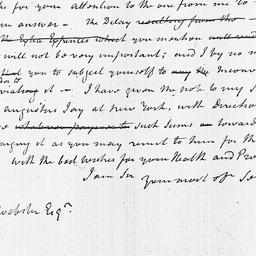 ks for your attention to the one from me to
an answer — the Delay resulting from the
the Extra Expences which you mention will
will not be very important; and I by no m
you to subject yourself to any the Inconv
it — I have given the note to my S
augustus Jay at New York, with Direction
whatever such Sums as towards
you may remit to him for th
with the best wishes for your Health and Pro
I am Sir your most ob Se
webster Esqr.